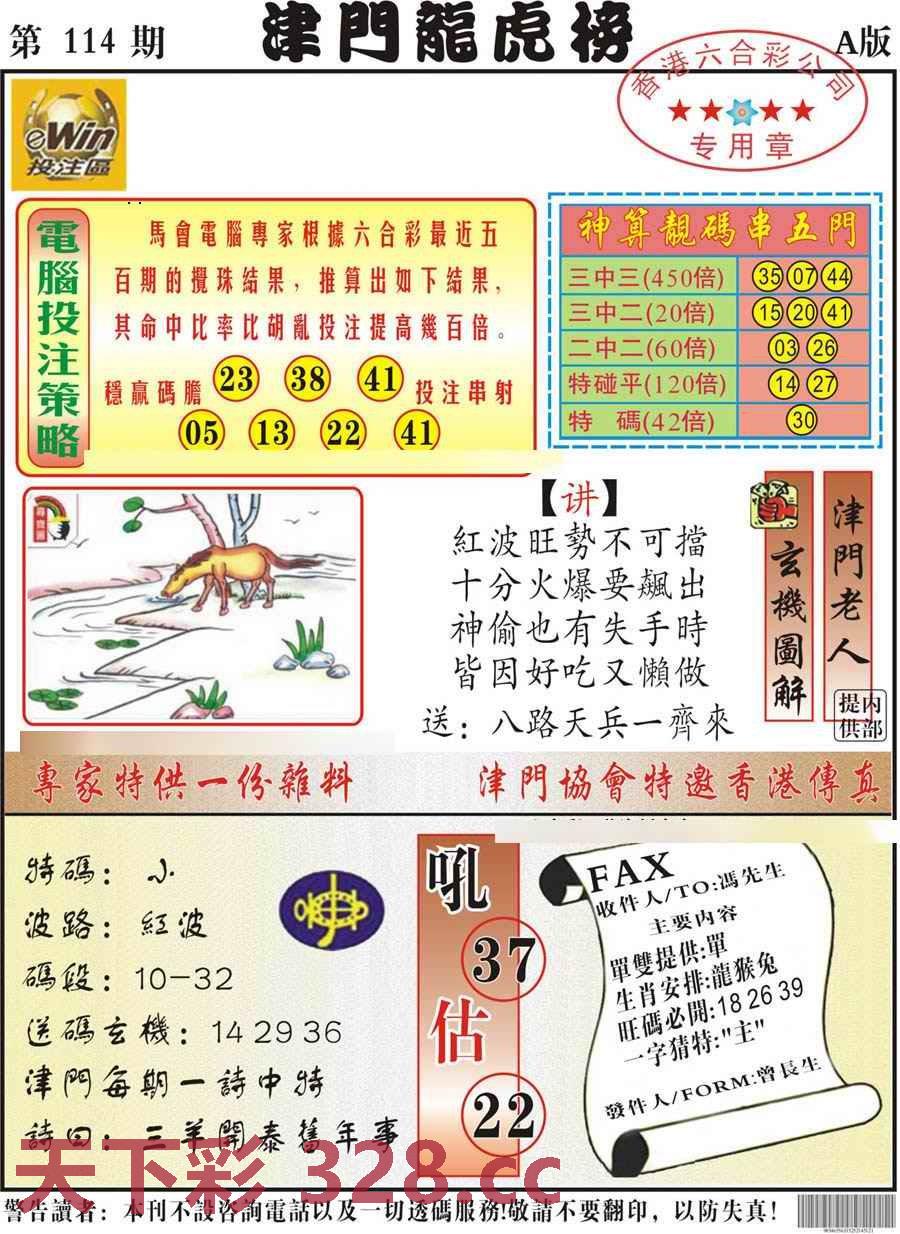 第 114 期
津門龍虎榜
A版
香港六合彩公司
专用章
eWin
投注區
電腦投注策略
馬會電腦專家根據六合彩最近五
百期的攪珠結果，推算出如下結果，
其命中比率比胡亂投注提高幾百倍。
穩贏碼膽 23 38 41 投注串射
05 13 22 41
神算靚碼串五門
三中三(450倍) 35 07 44
三中二(20倍) 15 20 41
二中二(60倍) 03 26
特碰平(120倍) 14 27
特 碼(42倍) 30
尋寶圖
【讲】
紅波旺勢不可擋
十分火爆要飆出
神偷也有失手時
皆因好吃又懶做
送：八路天兵一齊來
玄機圖解
津門老人
内部提供
專家特供一份雜料
津門協會特邀香港傳真
特碼：小
波路：紅波
碼段：10-32
送碼玄機：14 29 36
津門每期一詩中特
詩曰：三羊開泰舊年事
吼
37
估
22
FAX
收件人/TO:馮先生
主要内容
單雙提供:單
生肖安排:龍猴兔
旺碼必開:18 26 39
一字猜特:"主"
發件人/FORM:曾長生
天下彩 328.cc
警告讀者：本刊不設咨詢電話以及一切透碼服務!敬請不要翻印，以防失真！